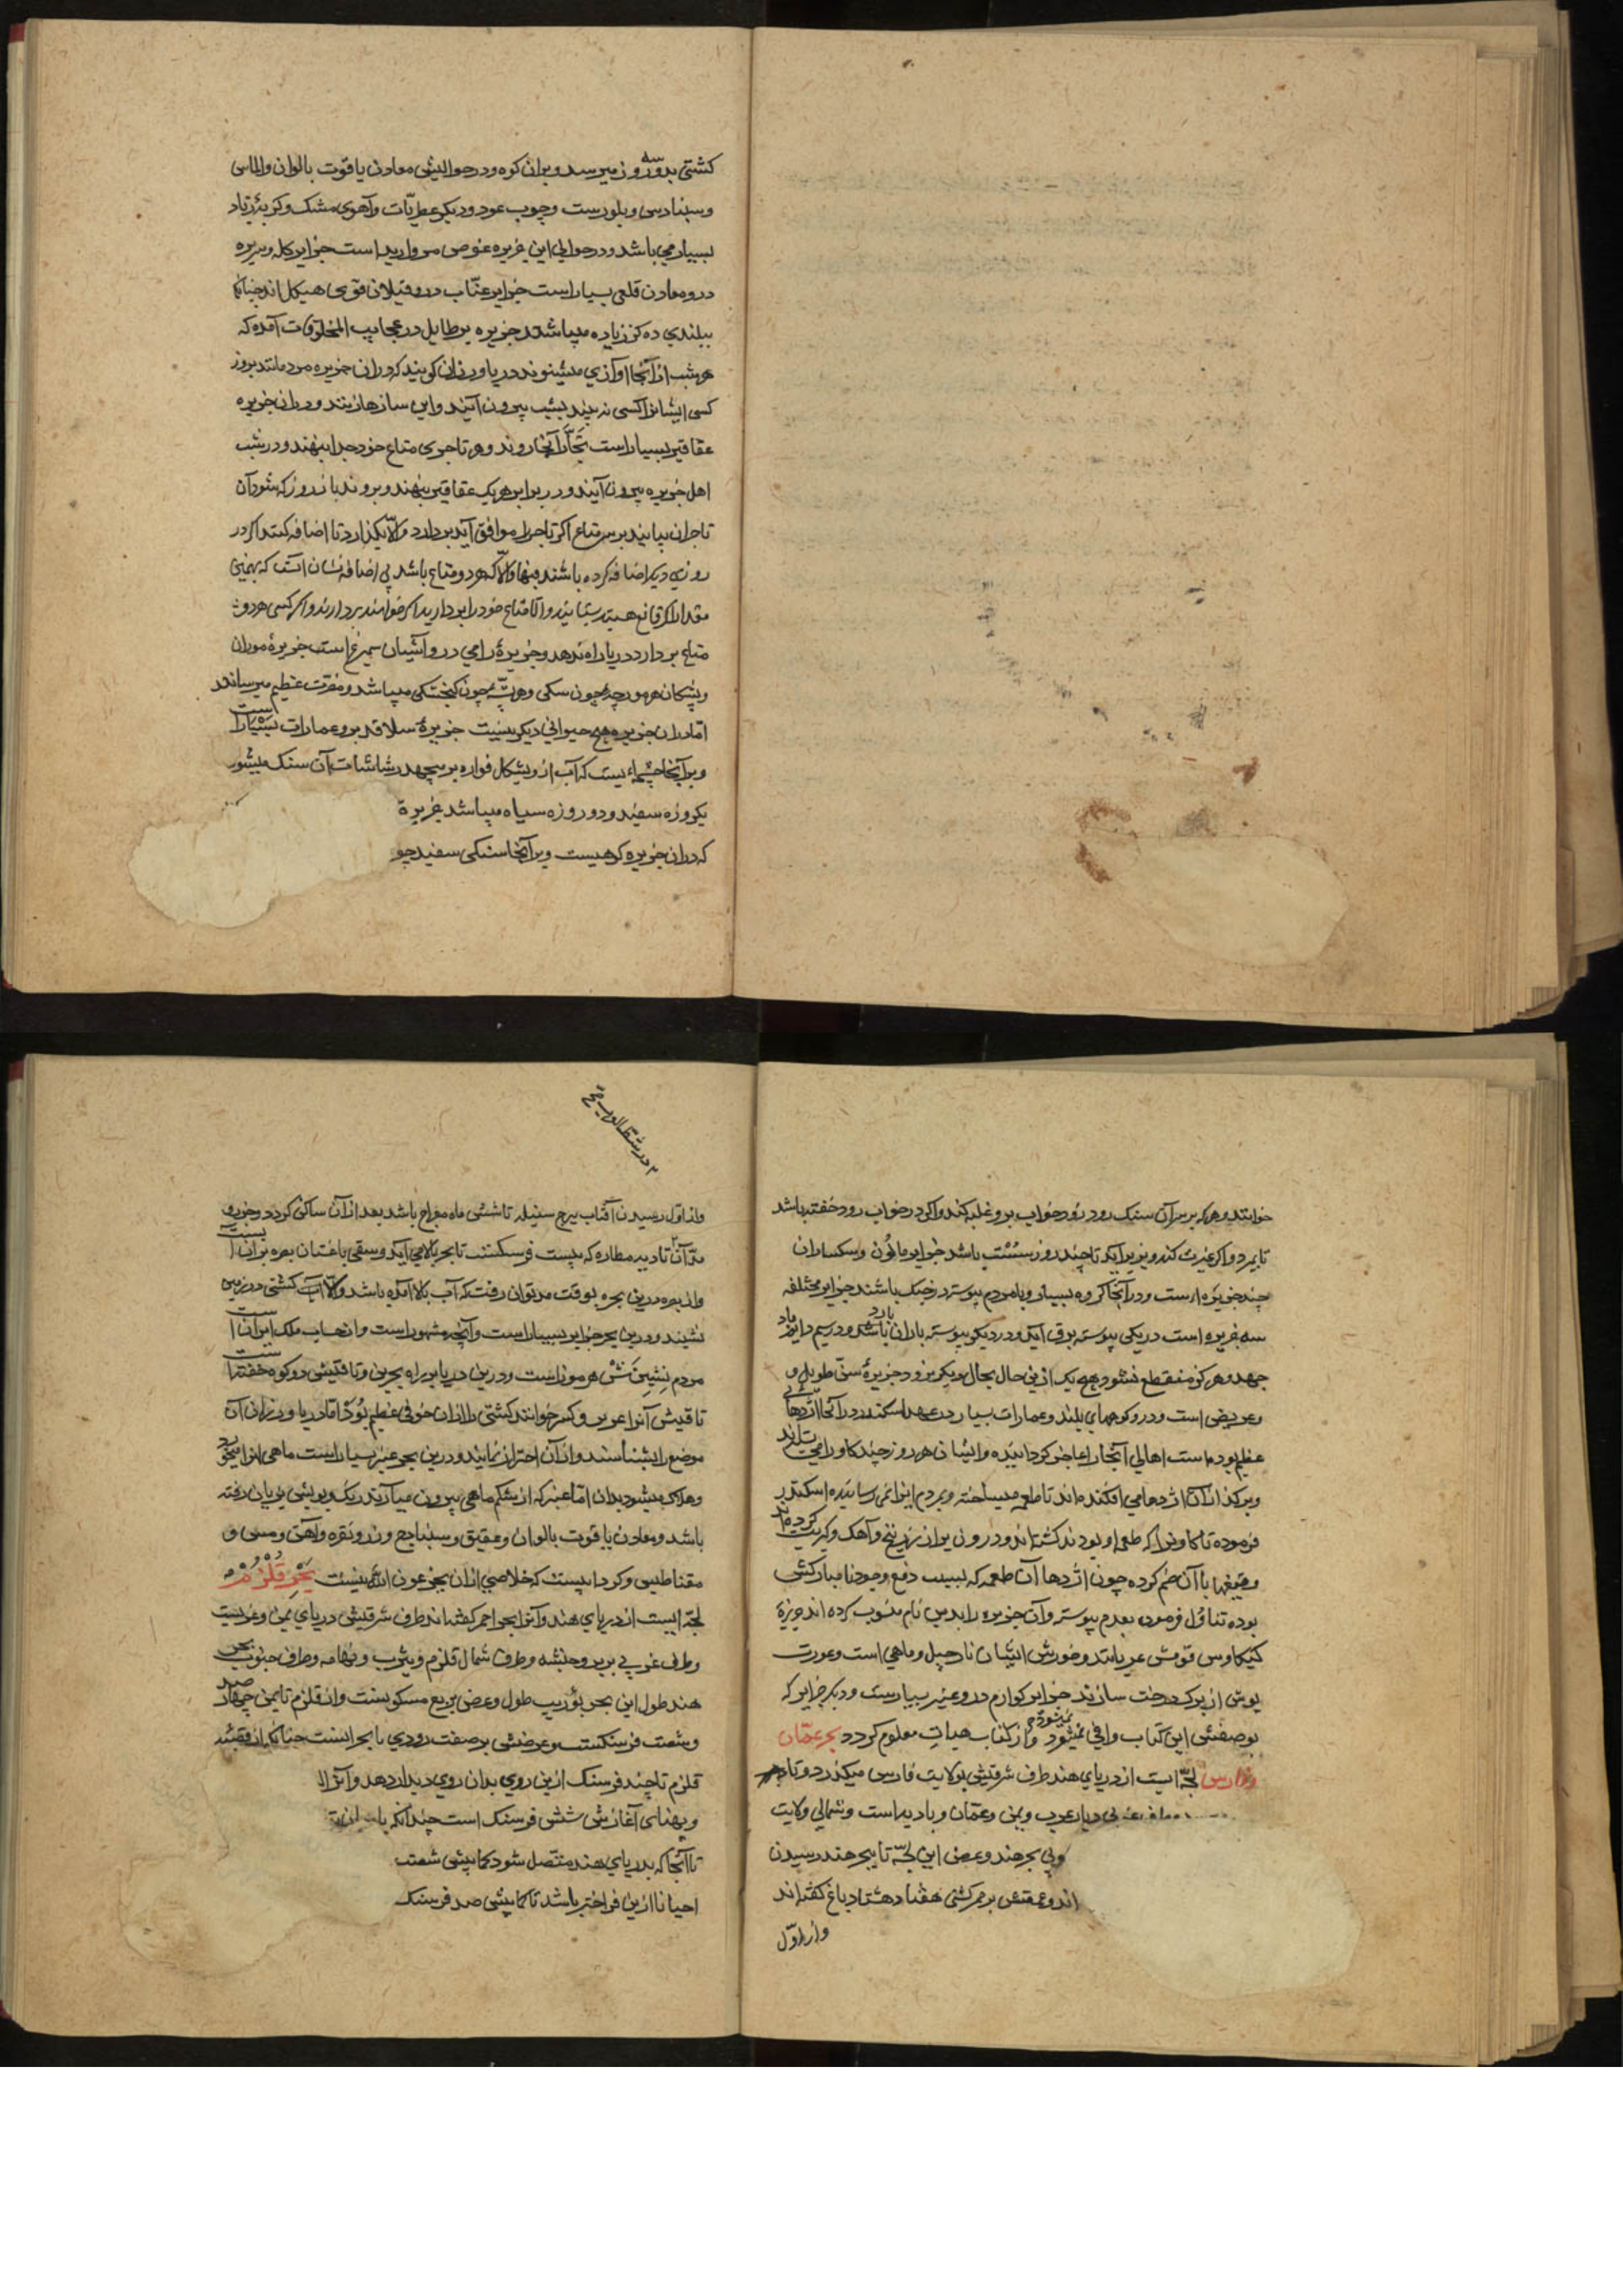 کشتی بدو سه روز میرسد و بران کوه و در حوالیش معادن یاقوت بالوان والماس
وسنبادسی وبلورست وچوب عود ودیکر عطریّات وآهوی مشک وکربهٔ زباد
بسیار می باشد ودر حوالی این جزیره غوص مروارید است جزایر کله وسریره
درو معادن قلعی بسیار است جزایر عنّاب درو فیلان قوی هیکل اند چنانکه
ببلندی ده کز زیاده میباشند جزیره برطایل در عجایب المخلوقات آمده که
هرشب از آنجا آوازی میشنوند دریاورزان کویند که دران جزیره مردمانند بروز
کسی ایشانرا کسی نه بیند بشب بیرون آیند واین سازها زنند ودران جزیره
عقاقیر بسیار است تجّار آنجا روند وهر تاجری متاع خود جدا بنهند ودر شب
اهل جزیره بیرون آیند ودر برابر هر یک عقاقیر بنهند وبروند باز روز که شود آن
تاجران بیایند برسر متاع اکر تاجر را موافق آید بردارد والّا بکذارد تا اضافه کنند اکر در
روزی دیکر اضافه کرده باشند فبها والّا که هردو متاع باشد بی اضافه نشان آنست که بهمین
مقدار اکر قانع هستید بستانید والّا متاع خود را بردارید اکر خواهند بردارند واکر کسی هردو
متاع بردارد دریا راه ندهد وجزیرهٔ رامی درو آشیان سیمرغ است جزیرهٔ موران
وپشکان هر مورچهٔ چون سکی وهر پشّه چون کنجشکی میباشد ومضرت عظیم میرسانند
امّا دران جزیره هیچ حیوانی دیکر نیست جزیرهٔ سلاقد برو عمارات بسیار است
وبر آنجا چشمهٔ ایست که آب ازو بشکل فواره برمیجهد رشاشات آن سنک میشود
یکروزه سفید ودو روزه سیاه میباشد جزیرهٔ
که دران جزیره کوهیست وبر آنجا سنکی سفید چو
خوانند وهرکه برسر آن سنک رود زود خواب برو غلبه کند واکر در خواب رود خفته باشد
تا بمرد واکر عزیمت کند وبزیر آید تا چند روز سست باشد جزایر مانُون وسکساران
چند جزیره است ودر آنجا کروه بسیار وبا مردم پیوسته در جنک باشند جزایر مختلفه
سه جزیره است در یکی پیوسته برق آید ودر دیکر پیوسته باران بارد ودر سیم دایم باد
جهد وهرکز منقطع نشود هیچ یک ازین حال بحال دیکر نرود جزیرهٔ ستّی طویل و
وعریض است ودرو کوههای بلند وعمارات بسیار در عهد اسکندر در آنجا اژدهائی
عظیم بوده است اهالی آنجا را عاجز کردانیده وایشان هر روز چند کاو را می
وبر کذر آن اژدها می افکنده اند تا طعمه میساخته وبمردم ایذا نمی رسانیده اسکندر
فرموده تا کاونر را که طعمه او بودند کشته اند ودرون پر از زرنیخ وآهک وکبریت کرده اند
باآن ضم کرده چون اژدها آن طعمه که بسبب دفع وجود نامبارکش
بوده تناول فرموده بعدم پیوسته وآن جزیره را بدین نام منسوب کرده اند جزیرهٔ
کیکاوس قومش عریانند وخورش ایشان نارجیل وماهی است وعورت
پوش از برک درخت سازند جزایر کوارم درو عنبر بسیارست ودیکر جزایر که
بوصفش این کتاب وافی نمیشود واز کتاب هیات معلوم کردد بحر عمّان
وفارس لجّه ایست از دریای هند طرف شرقیش بولایت فارس میکذرد وتا
غربی دیار عرب ویمن وعمّان وبادیه است وشمالی ولایت
وبی بحر هند وعرض این لجّه تا ببحر هند رسیدن
اند وعمقش برممرکشتی هفتاد هشتاد باغ کفته اند
واز اوّل
در شط العرب
واز اول رسیدن آفتاب ببرج سنبله تا شش ماه موّاج باشد بعد از آن ساکن کردد وجزر و
مد آن تا دیه مطاره که بیست فرسنکست تا بحر بالا می آید وسقی باغستان بصره بران است
واز بصره درین بحره بوقت مد توان رفت که آب بالا آمده باشد والّا کشتی در زمین
نشیند ودرین بحر جزایر بسیار است وآنچه مشهور است وازحساب ملک ایران است
مردم نشین نش هرموز است ودرین دریا براه بحرین وتا قیش دو کوه خفته است
تا قیش آنرا عویر وکسیر خوانند کشتی را ازان خوف عظیم بُود امّا دریاورزان آن
موضع را بشناسند وازآن احتراز نمایند ودرین بحر عنبر بسیار است ماهی آنرا میخورد
وهلاک میشود بدان امّا عنبر که از شکم ماهی بیرون میآرند رنک وبویش بزیان رفته
باشد ومعادن یاقوت بالوان وعقیق وسنباده وزر ونقره وآهن ومس و
مقناطیس وکردابیست که خلاصی ازان بجز عون اللّه نیست بحر قلزم
لجّه ایست از دریای هند وآنرا بحر احمر کفته اند طرف شرقیش دریای یمن وعربست
وطرف غربی بربر وحبشه وطرف شمال قلزم ویثرب وتهامه وطرف جنوبیش بحر
هند طول این بحر بؤریب طول وعرض بربع مسکونست واز قلزم تا یمن چهار صد
وشصت فرسنکست وعرضش برصفت رودی با بحر است چنانکه از قصبهٔ
قلزم تا چند فرسنک ازین روی بدان روی دیدار دهد وآنرا
وپهنای آغازش شش فرسنک است چندانکه
تا آنجا که بدریای هند متّصل شود کمابیش شصت
احیانا ازین فراختر باشد تا کمابیش صد فرسنک